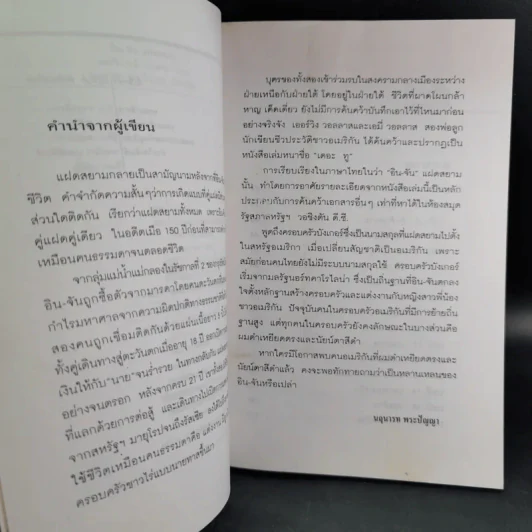 คำนำจากผู้เขียน
แฝดสยามกลายเป็นสามัญนามหลังจากที่อิน
ชีวิต คำจำกัดความสั้นๆว่าการเกิดแบบที่คู่แฝด
ส่วนใดติดกัน เรียกว่าแฝดสยามทั้งหมด
คู่แฝดคู่เดียว ในอดีตเมื่อ 150 ปีก่อนที่สามารถ
เหมือนคนธรรมดาจนตลอดชีวิต
จากลุ่มแม่น้ำแม่กลองในรัชกาลที่ 2
อิน-จันถูกซื้อตัวจากมารดาโดยคนตะวันตก
กำไรมหาศาลจากความผิดปกติทางธรรมชาติ
สองคนถูกเชื่อมติดกันด้วยแผ่นเนื้อยาว
ทั้งคู่เดินทางสู่ตะวันตกเมื่ออายุ 18 ปี
เงินให้กับ"นาย"จนร่ำรวย ในทางกลับกัน
อย่างจนตรอก หลังจากครบ 21 ปี
ที่แลกด้วยการต่อสู้ และเดินทางไป
จากสหรัฐฯ มายุโรปจนถึงรัสเซีย
ใช้ชีวิตเหมือนคนธรรมดาคือ แต่งงาน
ครอบครัวชาวไร่แบบนายทาสขึ้นมา
บุตรของทั้งสองเข้าร่วมรบในสงครามกลางเมืองระหว่าง
ฝ่ายเหนือกับฝ่ายใต้ โดยอยู่ในฝ่ายใต้ ชีวิตที่ผาดโผนกล้า
หาญ เด็ดเดี่ยว ยังไม่มีการค้นคว้าบันทึกเอาไว้ที่ไหนมาก่อน
อย่างจริงจัง เออร์วิง วอลลาสและเอมี่ วอลลาส สองพ่อลูก
นักเขียนชีวประวัติชาวอเมริกัน ได้ค้นคว้าและปรากฏเป็น
หนังสือเล่มหนาชื่อ "เดอะ ทู"
การเรียบเรียงในภาษาไทยในว่า "อิน-จัน" แฝดสยาม
นั้น ทำโดยการอาศัยรายละเอียดจากหนังสือเล่มนี้เป็นหลัก
ประกอบกับการค้นคว้าเอกสารอื่นๆ เท่าที่หาได้ในห้องสมุด
รัฐสภาสหรัฐฯ วอชิงตัน ดี.ซี.
พูดถึงครอบครัวบังเกอร์ซึ่งเป็นนามสกุลที่แฝดสยามไปตั้ง
ในสหรัฐอเมริกา เมื่อเปลี่ยนสัญชาติเป็นอเมริกัน เพราะ
สมัยก่อนคนไทยยังไม่มีระบบนามสกุลใช้ ครอบครัวบังเกอร์
เริ่มจากมลรัฐนอร์ทคาโรไลน่า ซึ่งเป็นถิ่นฐานที่อิน-จันตกลง
ใจตั้งหลักฐานสร้างครอบครัวและแต่งงานกับหญิงสาวพี่น้อง
ชาวอเมริกัน ปัจจุบันคนในครอบครัวนี้ในอเมริกันที่มีการย้ายถิ่น
ฐานสูง แต่ทุกคนในครอบครัวยังคงลักษณะในบางส่วนคือ
ผมดำเหยียดตรงและนัยน์ตาสีดำ
หากใครมีโอกาสพบคนอเมริกันที่ผมดำเหยียดตรงและ
นัยน์ตาสีดำแล้ว คงจะพอทักทายถามว่าเป็นหลานเหลนของ
อิน-จันหรือเปล่า